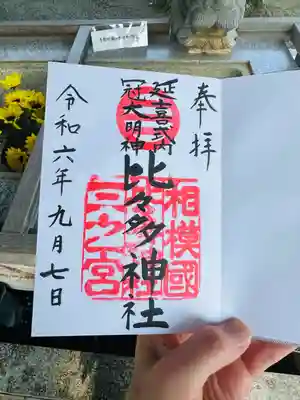 奉拝
延喜式内
冠大明神
比々多神社
相模國
三之宮
令和六年九月七日